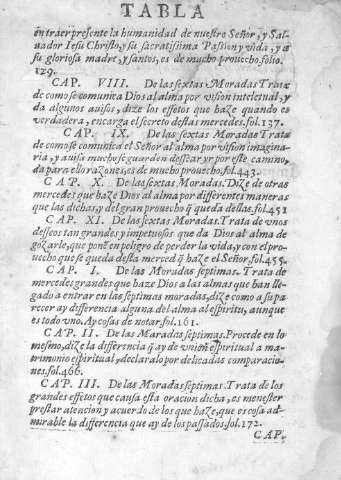 TABLA
entraer presente la humanidad de nuestro Señor, y Sal-
uador Iesu Christo, y su sacratissima Passion y vida, y a
su gloriosa madre, y santos, es de mucho prouecho. folio.
129.
CAP. VIII. De las sextas Moradas Trata
de como se comunica Dios al alma por vision intelctual, y
da algunos auisos, dize los effetos que haze quando es
verdadera, encarga el secreto destas mercedes. fol. 137.
CAP. IX. De las sextas Moradas Trata
de como se comunica el Señor al alma por vision imagina-
ria, y auisa mucho se guarden dessear yr por este camino,
da para ello razones, es de mucho prouecho. fol. 443.
CAP. X. De las sextas Moradas. Dize de otras
mercedes que haze Dios al alma por differentes maneras
que las dichas, y del gran prouecho q̃ queda dellas. fol. 451
CAP. XI. De las sextas Moradas. Trata de vnos
desseos tan grandes y impetuosos que da Dios al alma de
gozarle, que ponẽ en peligro de perder la vida, y con el pro-
uecho que se queda desta merced q̃ haze el Señor. fol. 455.
CAP. I. De las Moradas septimas. Trata de
mercedes grandes que haze Dios a las almas que han lle-
gado a entrar en las septimas moradas, dize como a su pa-
recer ay differencia alguna del alma al espiritu, aunque
es todo vno. Ay cosas de notar. fol. 161.
CAP. II. De las Maradas septimas. Procede en lo
mesmo, dize la differencia q̃ ay de vnion espiritual a ma-
trimonio espiritual, declaralo por delicadas comparacio-
nes. fol. 466.
CAP. III. De las Moradas septimas. Trata de los
grandes effetos que causa esta oracion dicha, es menester
prestar atencion y acuerdo de los que haze, que es cosa ad-
mirable la differencia que ay de los passados. fol. 172.
CAP.